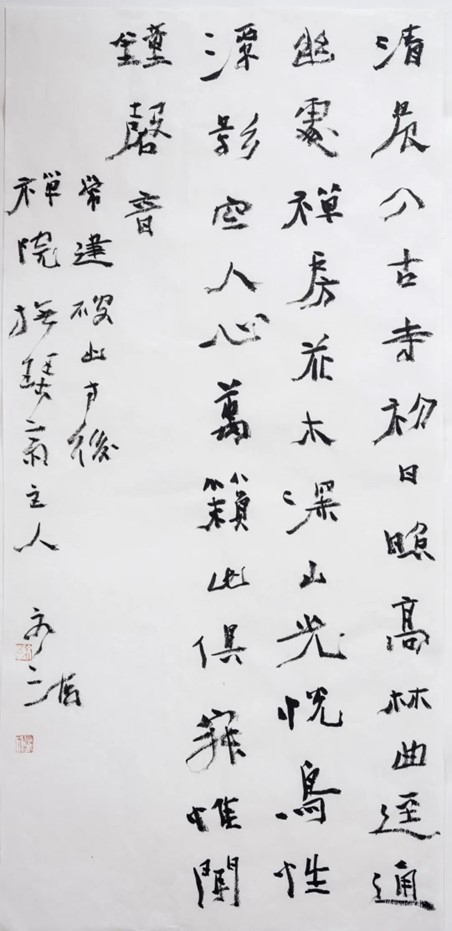 清晨入古寺初日照高林曲逕通
幽處禪房花木深山光悅鳥性
潭影空人心萬籟此俱寂惟聞
鐘磬音
常建破山寺後
禪院 撫琴主人